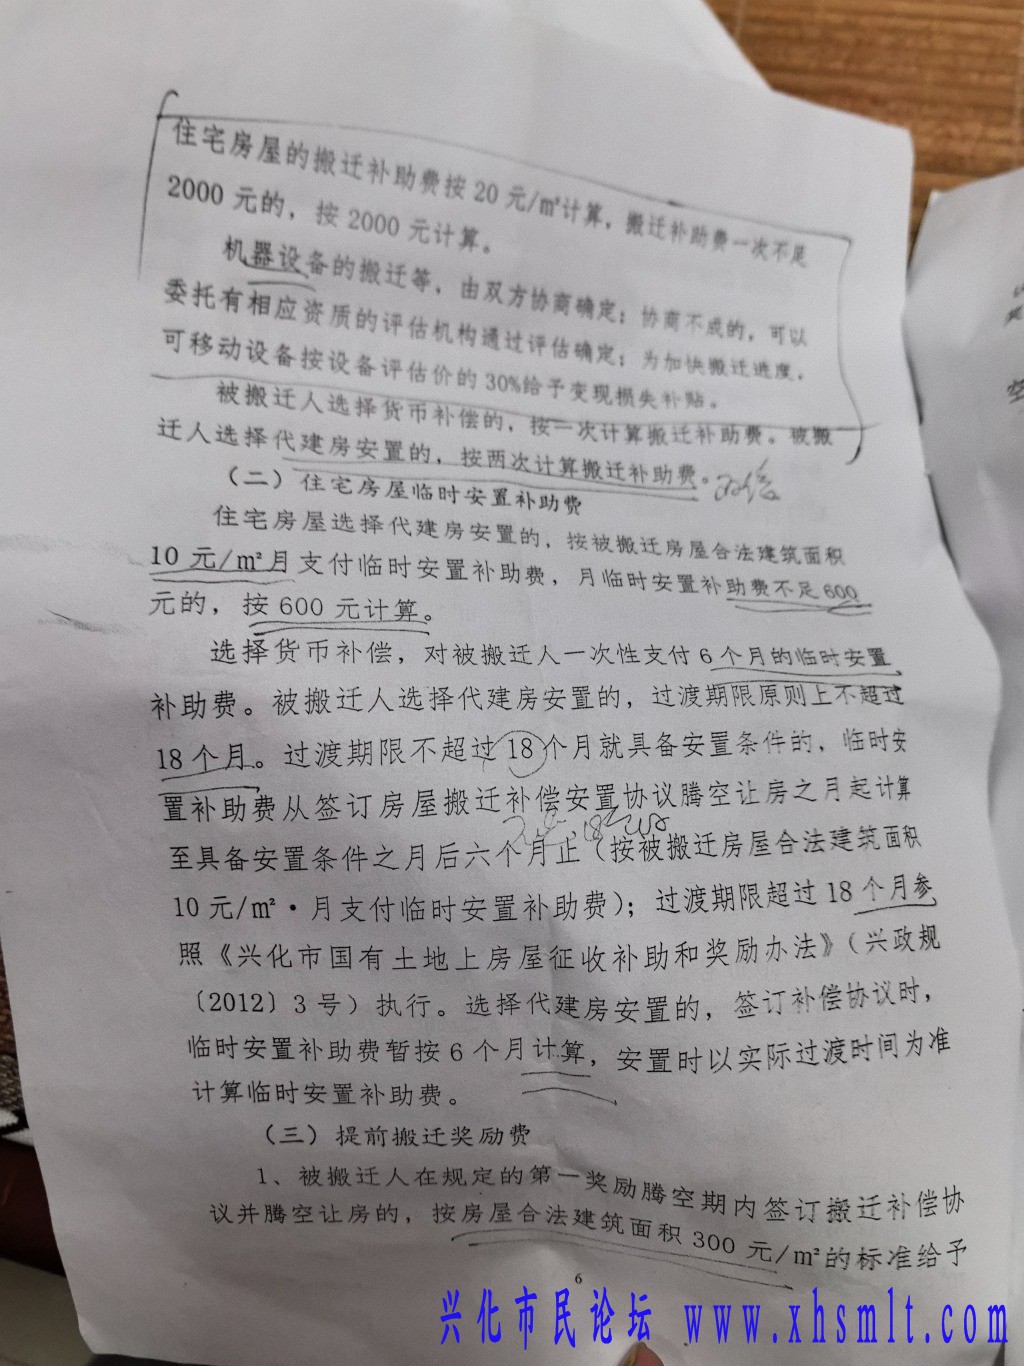 住宅房屋的搬迁补助费按20元/㎡计算，搬迁补助费一次不足
2000元的，按2000元计算。
机器设备的搬迁等，由双方协商确定；协商不成的，可以
委托有相应资质的评估机构通过评估确定；为加快搬迁进度，
可移动设备按设备评估价的30%给予变现损失补贴。
被搬迁人选择货币补偿的，按一次计算搬迁补助费。被搬
迁人选择代建房安置的，按两次计算搬迁补助费。
（二）住宅房屋临时安置补助费
住宅房屋选择代建房安置的，按被搬迁房屋合法建筑面积
10元/㎡月支付临时安置补助费，月临时安置补助费不足600
元的，按600元计算。
选择货币补偿，对被搬迁人一次性支付6个月的临时安置
补助费。被搬迁人选择代建房安置的，过渡期限原则上不超过
18个月。过渡期限不超过18个月就具备安置条件的，临时安
置补助费从签订房屋搬迁补偿安置协议腾空让房之月起计算
至具备安置条件之月后六个月止（按被搬迁房屋合法建筑面积
10元/㎡·月支付临时安置补助费）；过渡期限超过18个月参
照《兴化市国有土地上房屋征收补助和奖励办法》（兴政规
〔2012〕3号）执行。选择代建房安置的，签订补偿协议时，
临时安置补助费暂按6个月计算，安置时以实际过渡时间为准
计算临时安置补助费。
（三）提前搬迁奖励费
1、被搬迁人在规定的第一奖励腾空期内签订搬迁补偿协
议并腾空让房的，按房屋合法建筑面积300元/㎡的标准给予
6
兴化市民论坛 www.xhsmlt.com